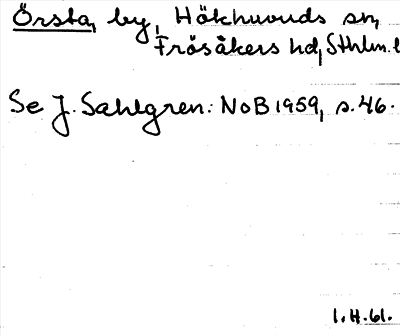 Örsta, by, Hökhuvuds sn,
Frösåkers hd, Sthlm. l
Se J. Sahlgren: NoB 1959, s. 46.
1.H.61.